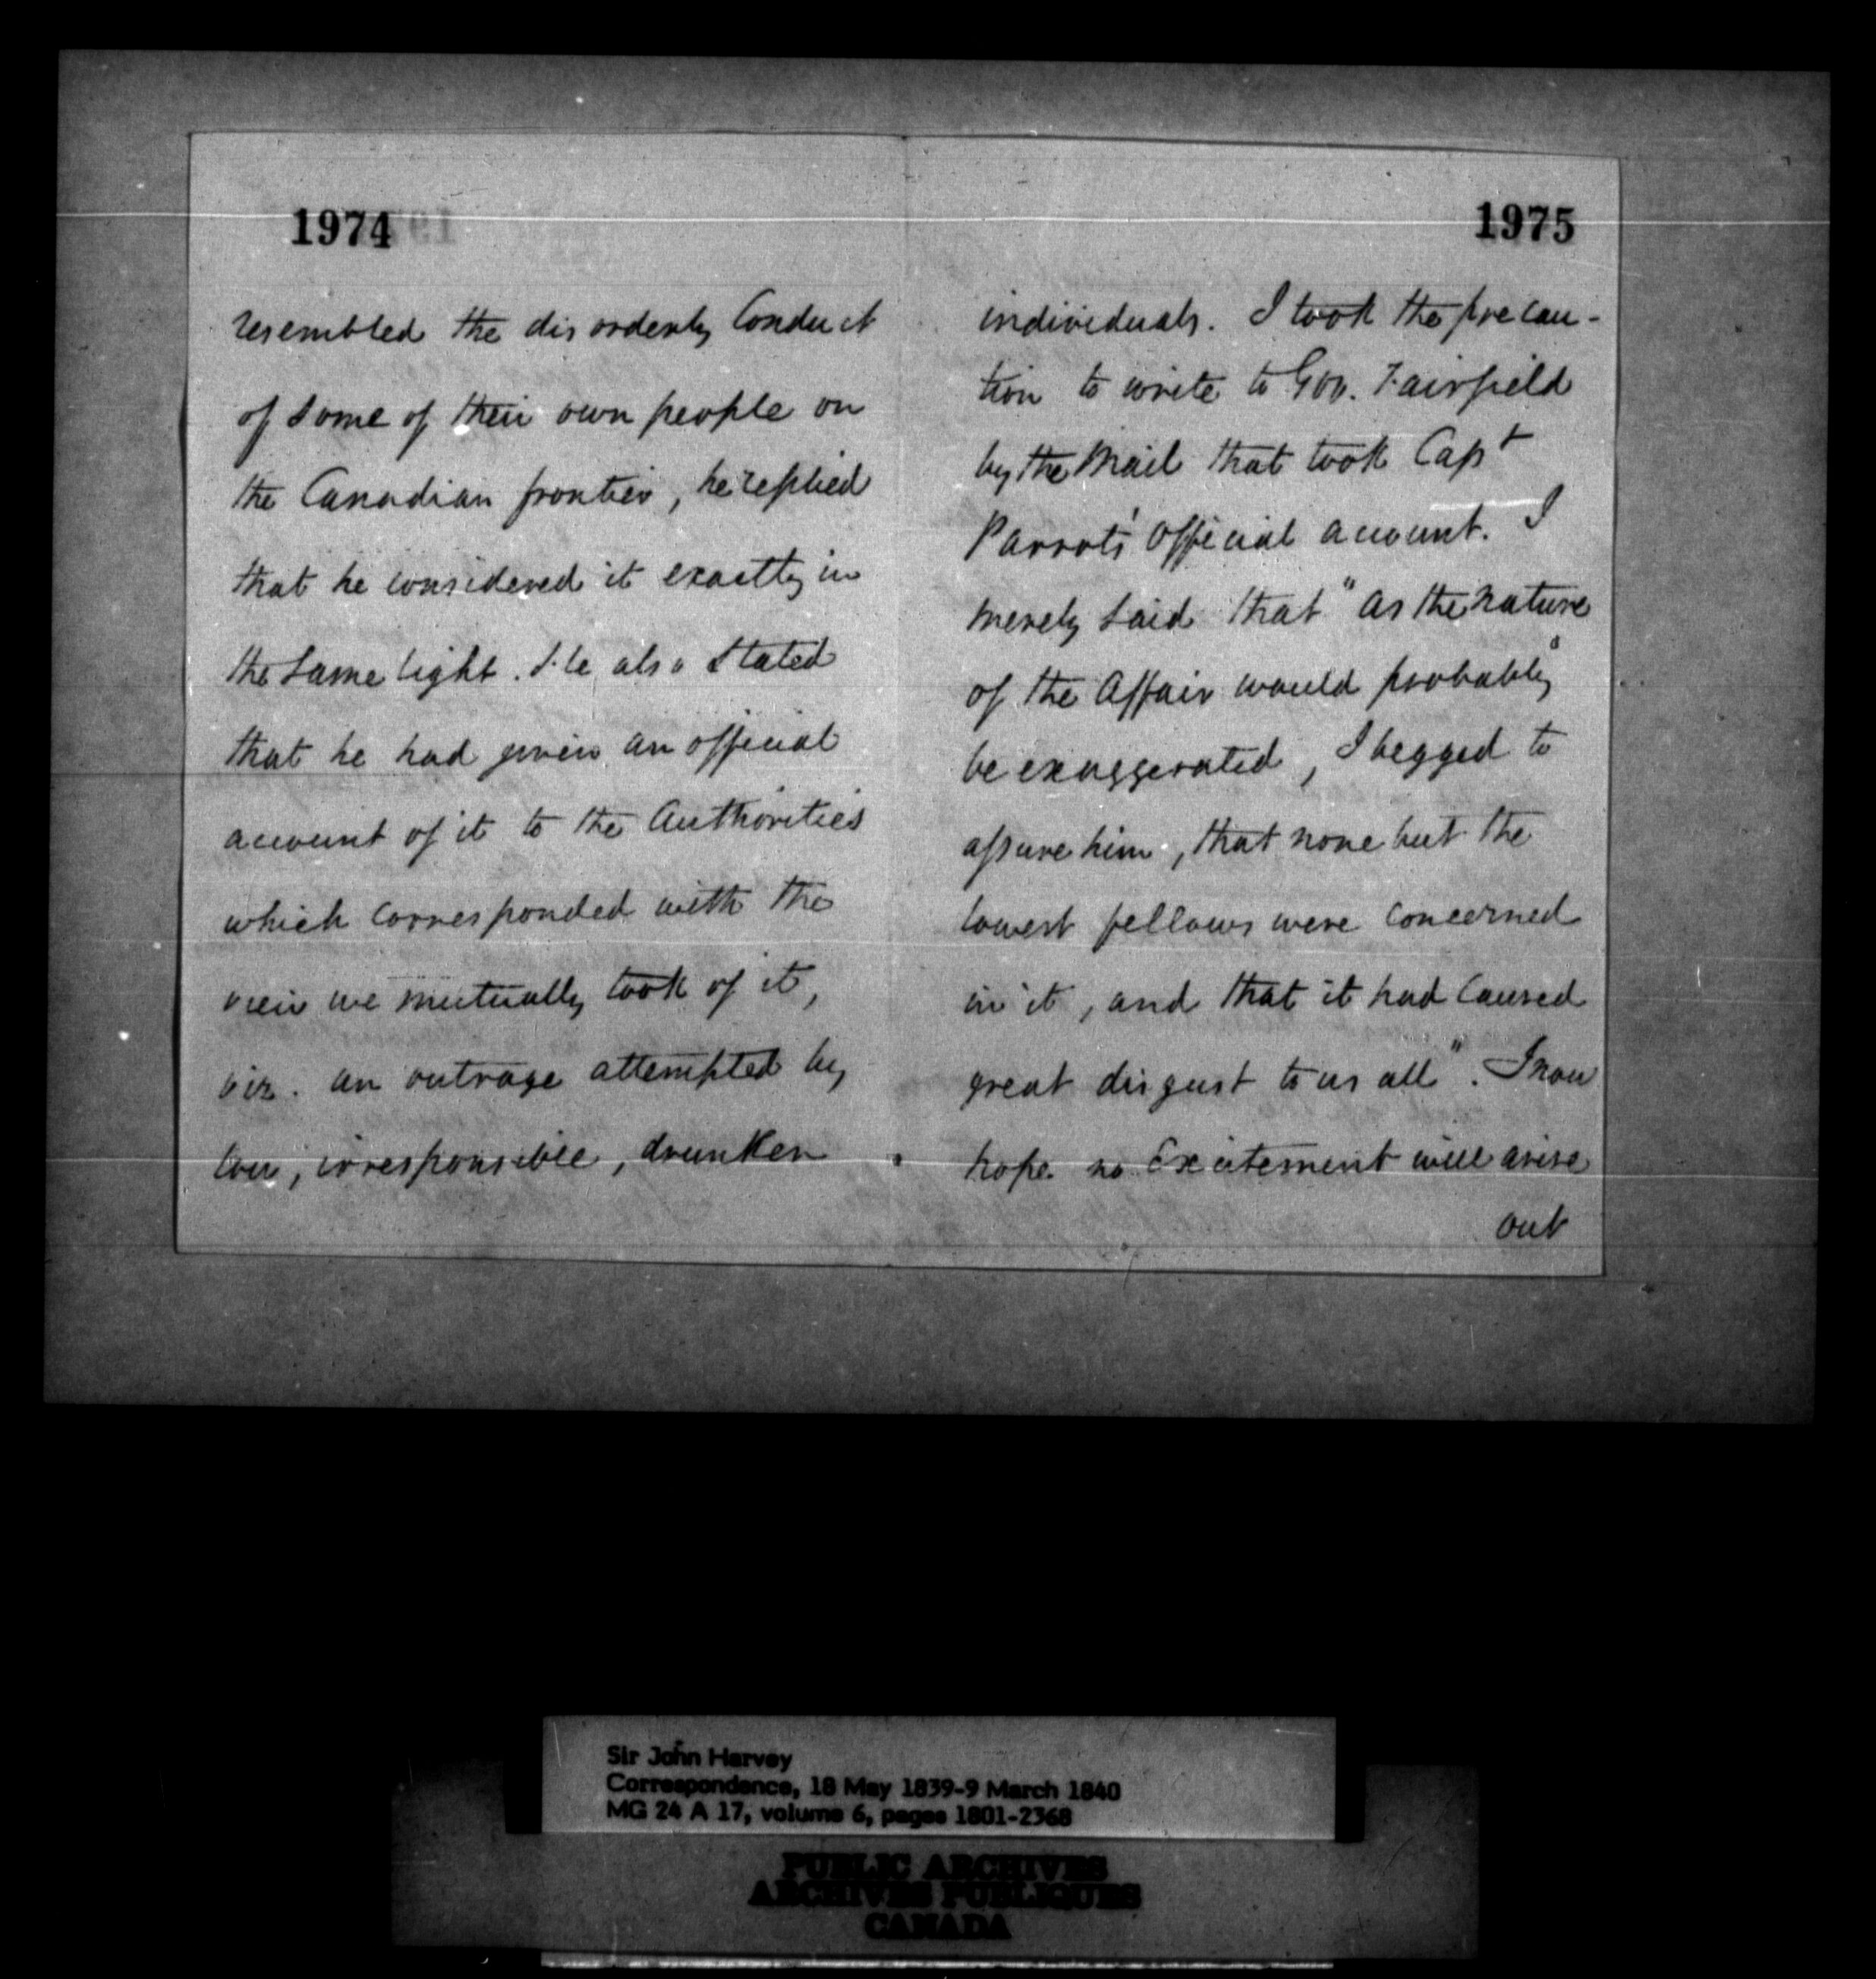 1974
resembled the disorderly Conduct
of some of their own people on
the Canadian frontier, he replied
that he considered it exactly in
the same light. He also stated
that he had given an official
account of it to the Authorities
which corresponded with the
view we mutually took of it,
viz. an outrage attempted by
low, irresponsible, drunken
1975
individuals. I took the precau-
tion to write to Gov. Fairfield
by the Mail that took Capt
Parrot's Official account. I
merely said that "as the nature
of the Affair would probably"
be exaggerated, I begged to
assure him, that none but the
lowest fellows were concerned
in it, and that it had caused
great disgust to us all". I now
hope no Excitement will arise
out
Sir John Harvey
Correspondence, 18 May 1839-9 March 1840
MG 24 A 17, volume 6, pages 1801-2368
PUBLIC ARCHIVES
ARCHIVES PUBLIQUES
CANADA